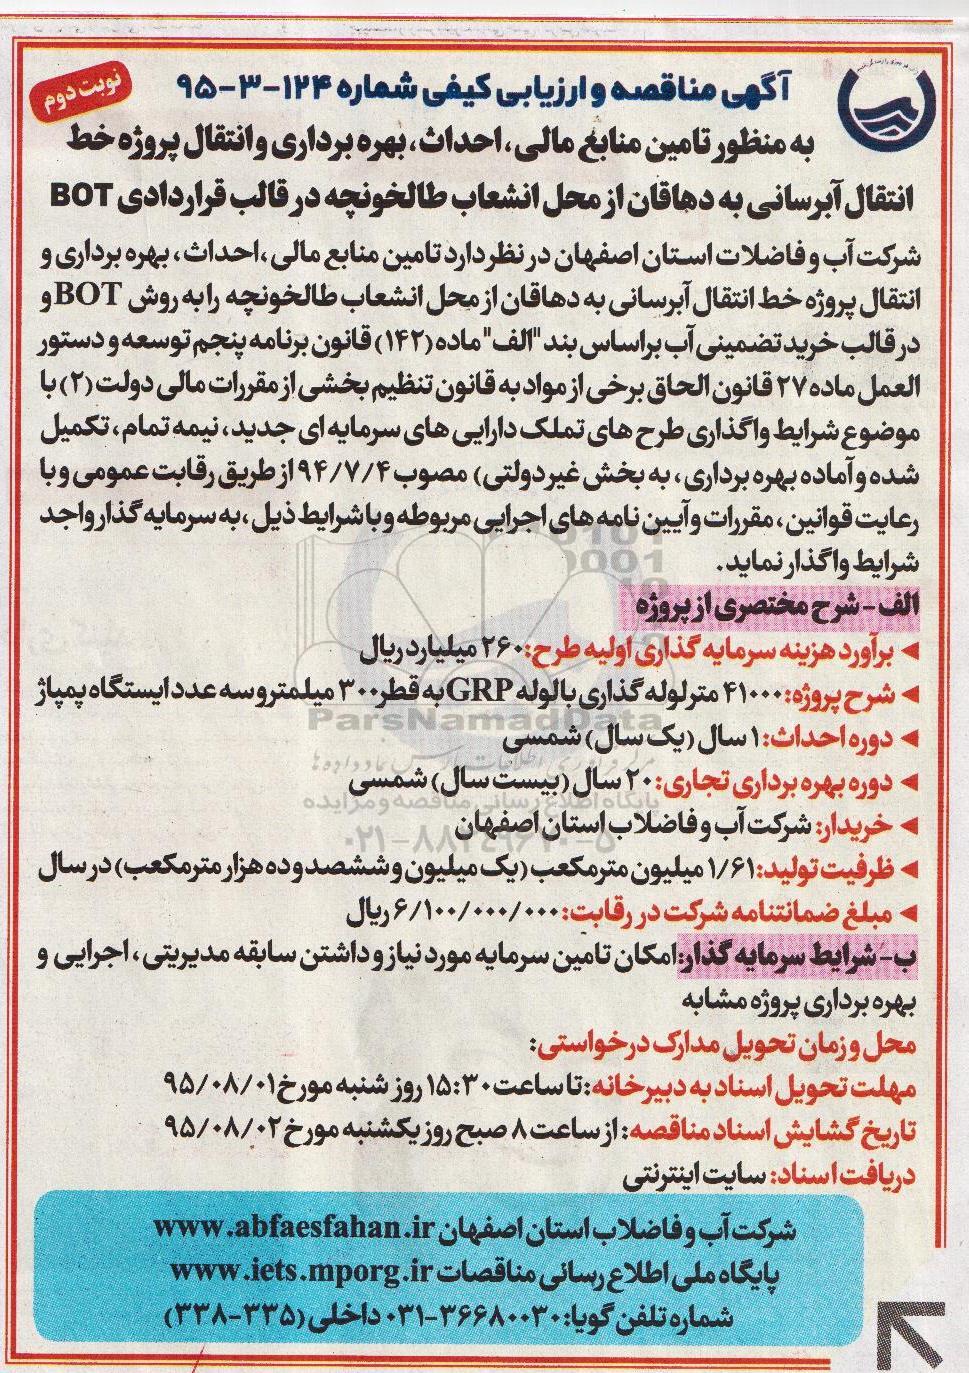 نوبت دوم
آگهی مناقصه و ارزیابی کیفی شماره ۱۲۴-۳-۹۵
به منظور تامین منابع مالی، احداث، بهره برداری و انتقال پروژه خط
انتقال آبرسانی به دهاقان از محل انشعاب طالخونچه در قالب قراردادی BOT
شرکت آب و فاضلات استان اصفهان در نظر دارد تامین منابع مالی، احداث، بهره برداری و
انتقال پروژه خط انتقال آبرسانی به دهاقان از محل انشعاب طالخونچه را به روش BOT و
در قالب خرید تضمینی آب براساس بند "الف" ماده (۱۴۲) قانون برنامه پنجم توسعه و دستور
العمل ماده ۲۷ قانون الحاق برخی از مواد به قانون تنظیم بخشی از مقررات مالی دولت (۲) با
موضوع شرایط واگذاری طرح های تملک دارایی های سرمایه ای جدید، نیمه تمام، تکمیل
شده و آماده بهره برداری، به بخش غیردولتی) مصوب ۹۴/۷/۴ از طریق رقابت عمومی و با
رعایت قوانین، مقررات و آیین نامه های اجرایی مربوطه و با شرایط ذیل، به سرمایه گذار واجد
شرایط واگذار نماید.
الف- شرح مختصری از پروژه
◄ برآورد هزینه سرمایه گذاری اولیه طرح: ۲۶۰ میلیارد ریال
◄ شرح پروژه: ۴۱۰۰۰ متر لوله گذاری با لوله GRP به قطر ۳۰۰ میلمتر و سه عدد ایستگاه پمپاژ
ParsNamadData
◄ دوره احداث: ۱ سال (یک سال) شمسی
◄ دوره بهره برداری تجاری: ۲۰ سال (بیست سال) شمسی
پایگاه اطلاع رسانی مناقصه و مزایده
◄ خریدار: شرکت آب و فاضلاب استان اصفهان
◄ ظرفیت تولید: ۱/۶۱ میلیون مترمکعب (یک میلیون و ششصد و ده هزار مترمکعب) در سال
◄ مبلغ ضمانتنامه شرکت در رقابت: ۶/۱۰۰/۰۰۰/۰۰۰ ریال
ب- شرایط سرمایه گذار: امکان تامین سرمایه مورد نیاز و داشتن سابقه مدیریتی، اجرایی و
بهره برداری پروژه مشابه
محل و زمان تحویل مدارک درخواستی:
مهلت تحویل اسناد به دبیرخانه: تا ساعت ۱۵:۳۰ روز شنبه مورخ ۹۵/۰۸/۰۱
تاریخ گشایش اسناد مناقصه: از ساعت ۸ صبح روز یکشنبه مورخ ۹۵/۰۸/۰۲
دریافت اسناد: سایت اینترنتی
شرکت آب و فاضلاب استان اصفهان www.abfaesfahan.ir
پایگاه ملی اطلاع رسانی مناقصات www.iets.mporg.ir
شماره تلفن گویا: ۳۶۶۸۰۰۳۰-۰۳۱ داخلی (۳۳۵-۳۳۸)